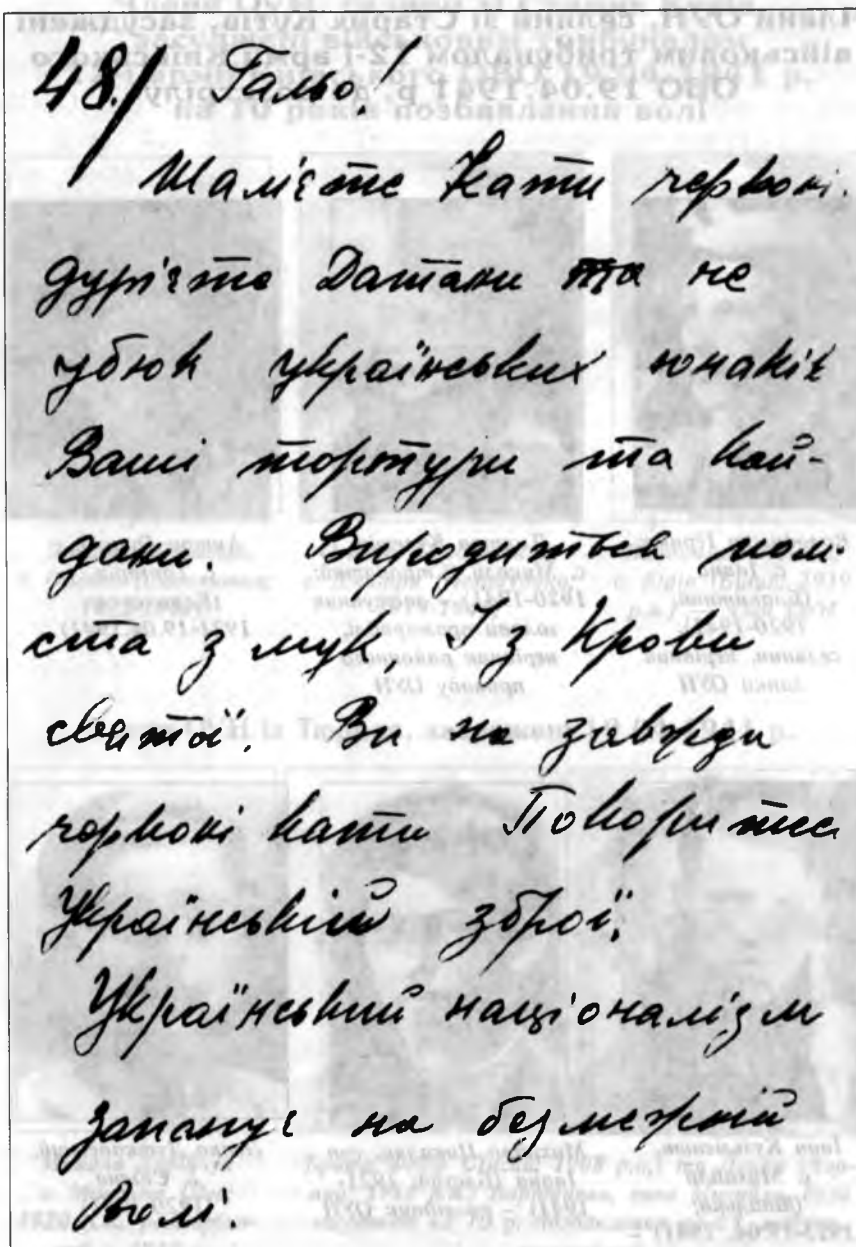 48./ Гальо!
Шалієте Кати червоні.
дурієте Датани та не
убюк українських юнаків
Ваші тортури та кай-
дани. Виродиться пом-
ста з мук, Із Крови
святої. Ви на завжди
червоні кати Покоритес
Українській зброї,
Український націоналізм
запанує на безмежній
Волі.